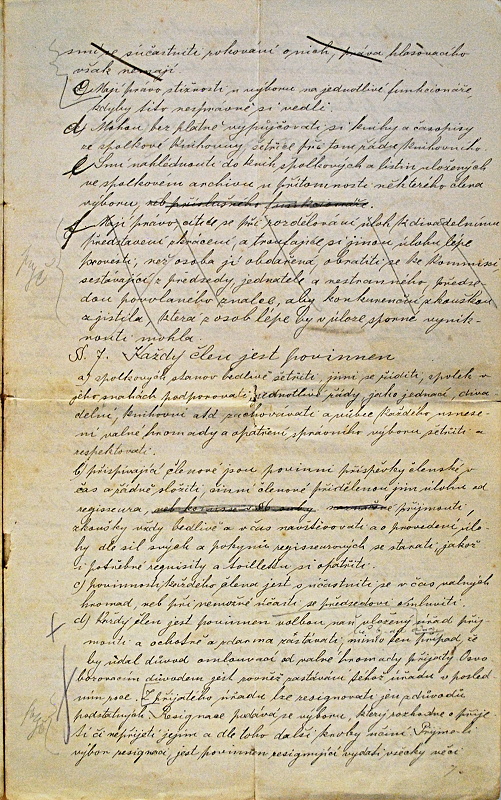 smí se súčastniti rokování o nich, práva hlasovacího
však nemají.
c) Mají právo stížnosti u výboru na jednotlivé funkcionáře,
kdyby tito nesprávně si vedli.
d) Mohou bez platně vypůjčovati si knihy a časopisy
ze spolkové knihovny, šetříce při tom řádu knihovního.
e) Smí nahlédnouti do knih spolkových a listin uložených
ve spolkovém archivu u přítomnosti některého člena
výboru,
f) Mají právo, cítíce se při rozdělování úloh k divadelnímu
představení zkráceni, a troufajíce si jinou úlohu lépe
provésti, než osoba jí obdařená, obrátiti se ke kommissi
sestávající z předsedy, jednatele a nestranného, předse-
dou povolaného znalce, aby konkurenční zkouškou
zjistila, která z osob lépe by v úloze sporné vynik-
nouti mohla.
§. 7. Každý člen jest povinnen
a) spolkových stanov bedlivě šetřiti, jimi se říditi, spolek v
jeho snahách podporovati, jednotlivé řády, jako jednací, diva
delní, knihovní atd zachovávati a vůbec každého usnese-
ní valné hromady a opatření správního výboru šetřiti a
respektovati.
b) přispívající členové jsou povinni příspěvky členské v
čas a řádně složiti, činní členové přidělenou jim úlohu od
regisseura, přijmouti,
zkoušky vždy bedlivě a v čas navštěvovati a o provedení úlo-
hy dle sil svých a pokynů regisseurových se starati, jakož
i potřebné requisity a toilettu si opatřiti.
c) povinností každého člena jest súčastniti se v čas valných
hromad, neb při nemožné účasti se předsedovi omluviti.
d) každý člen jest povinnen volbou naň vložený úřad přij-
mouti a ochotně a zdarma zastávati, mimo ten případ, že
by udal důvod omlouvací od valné hromady přijatý. Osvo
bozovacím důvodem jest rovněž zastávání téhož úřadu v posled-
ním roce. Z přijatého úřadu lze resignovati jen z důvodů
podstatných. Resignace podává se výboru, který rozhodne o přije
tí či nepřijetí jejím a dle toho další kroky učiní. Přijme-li
výbor resignaci, jest povinnen resignující vydati všecky věci
7.